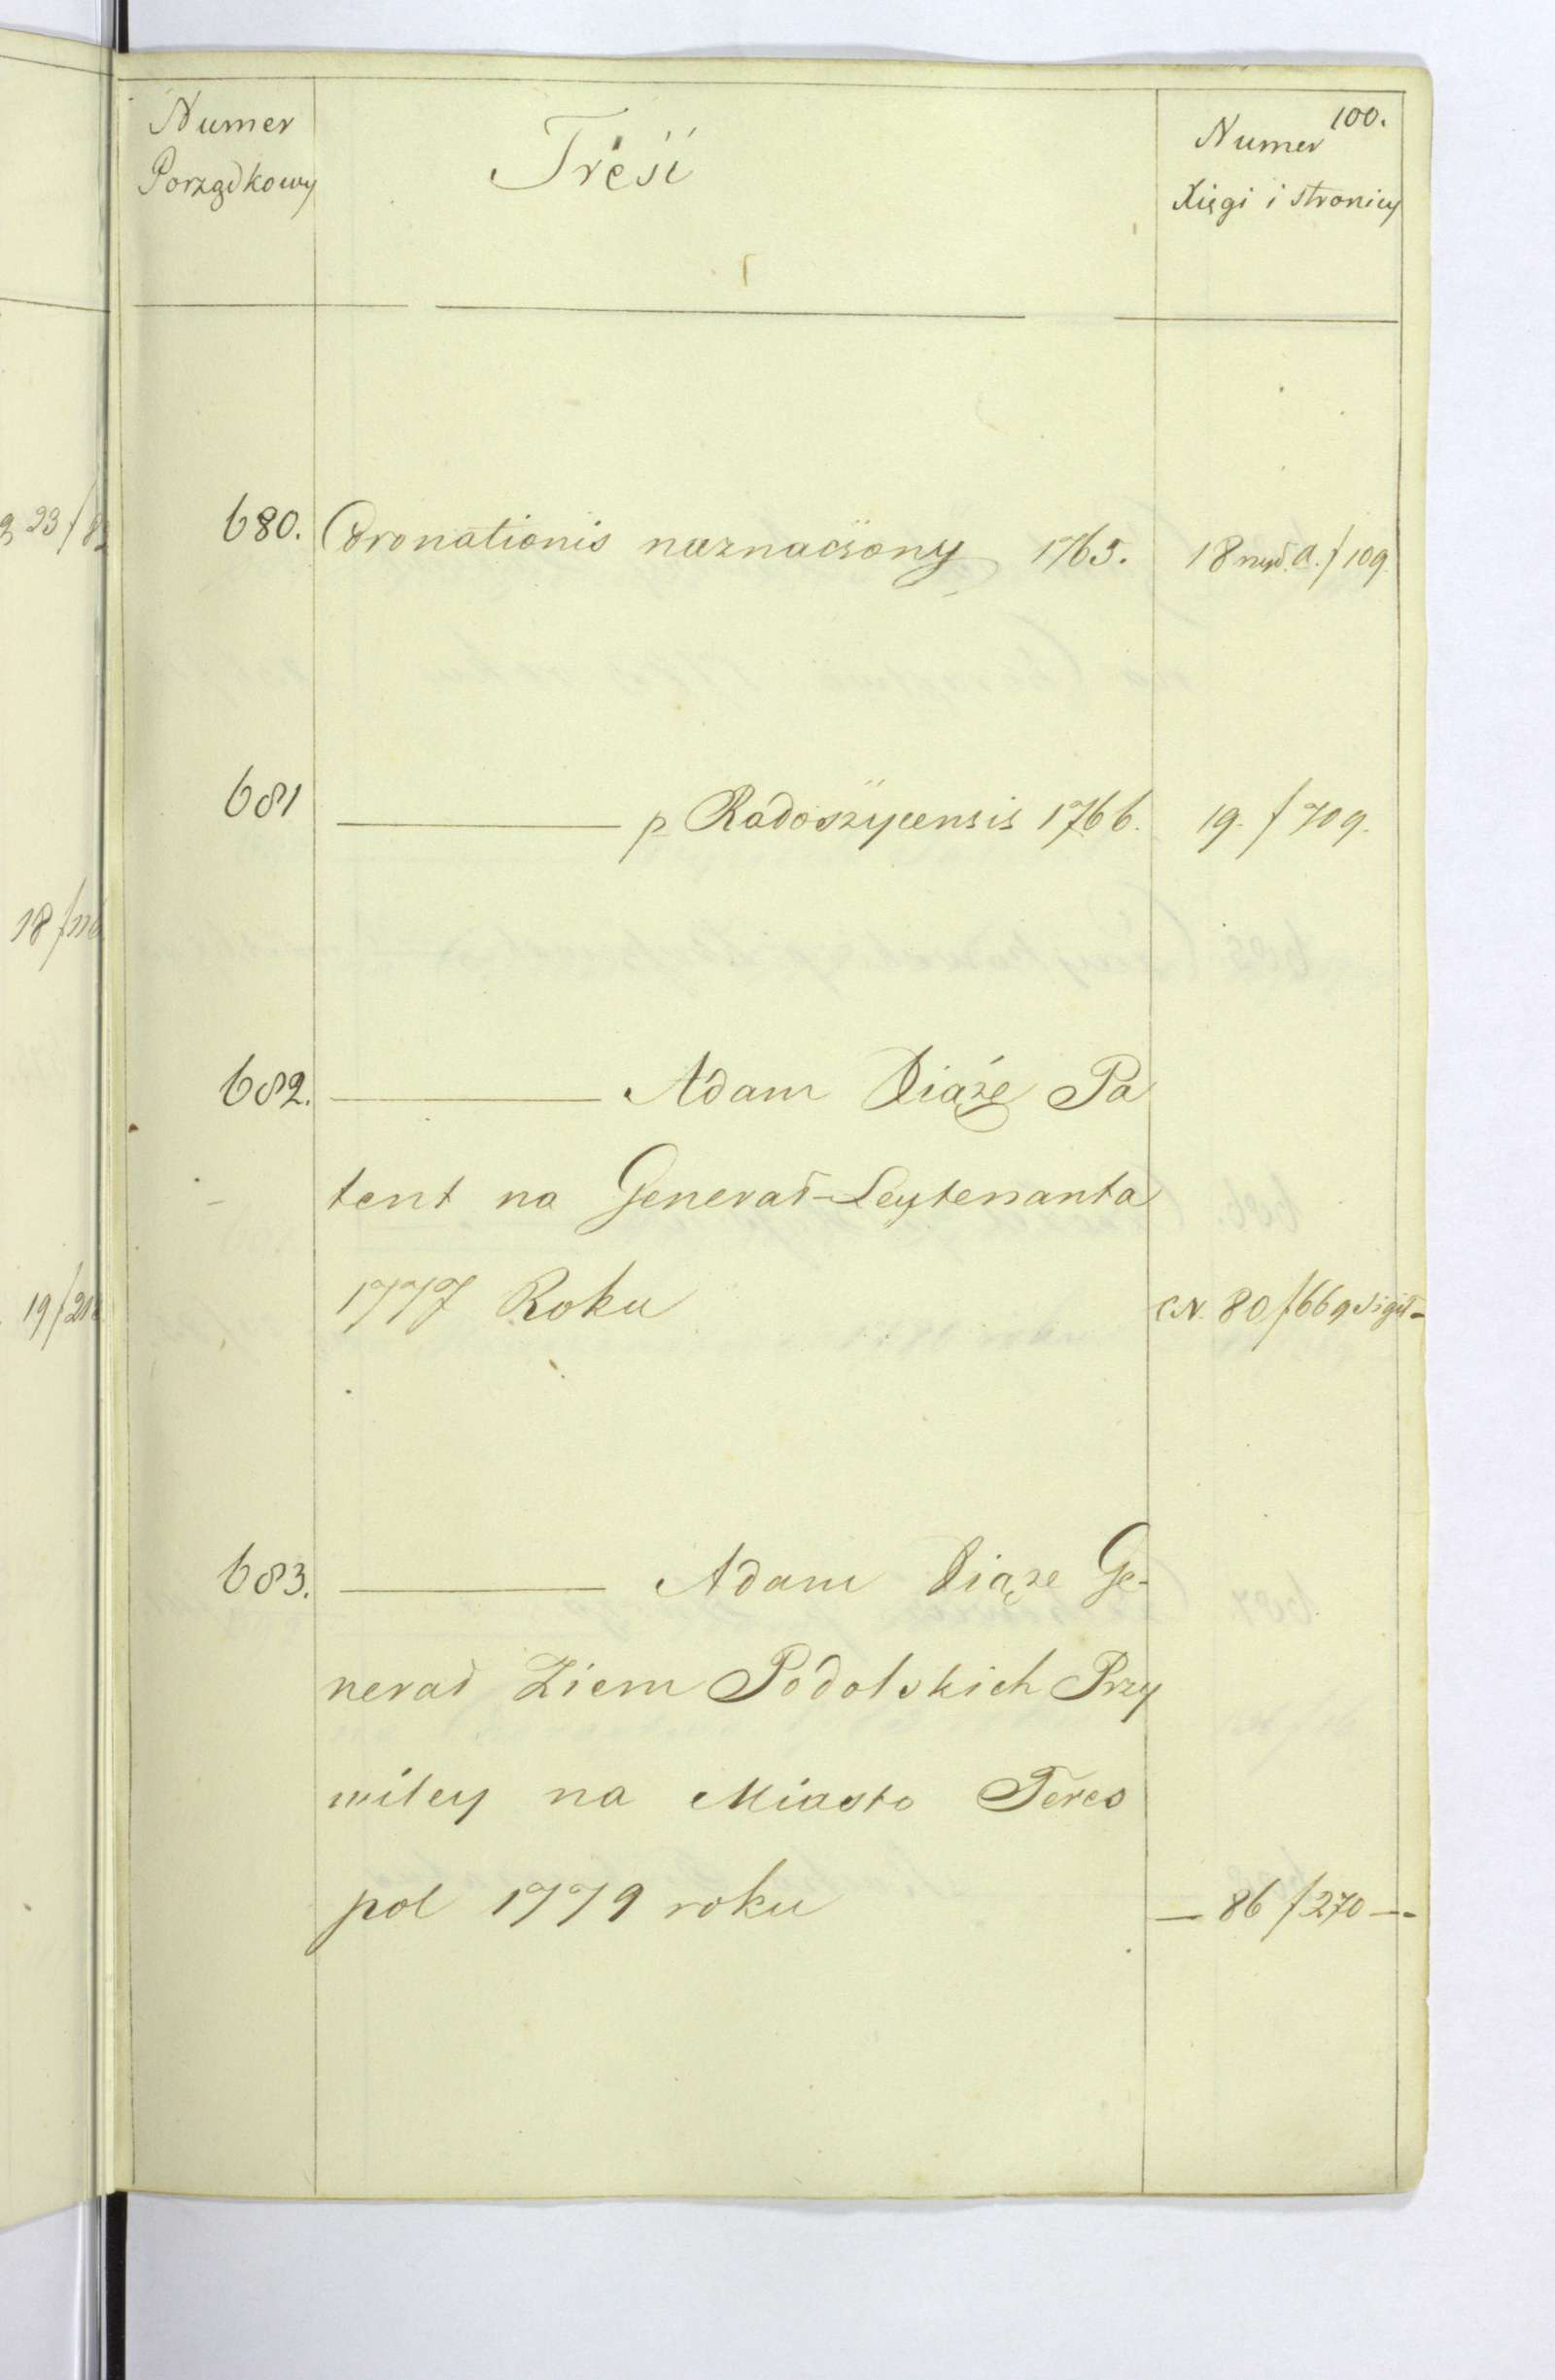 100.
Numer
Porządkowy
Treść
Numer
Xięgi i stronicy
680. Coronationis naznaczony 1765. 18 a. f 109.
681 — p Radoszycensis 1766. 19. f 709.
682. — Adam Xiąże Pa
tent na Generał-Leytenanta
1777 Roku C.N. 80 f 669 Sigil-
683. — Adam Xiąże Ge-
nerał Ziem Podolskich Przy
wiley na Miasto Teres
pol 1779 roku — 86 f 270 —
18/116
19/21